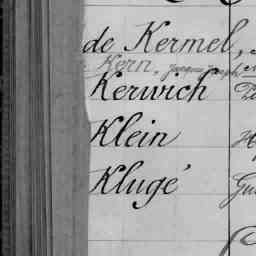 de Kermel,
Kern, Jacques Joseph
Kerwich
Klein
Klugé